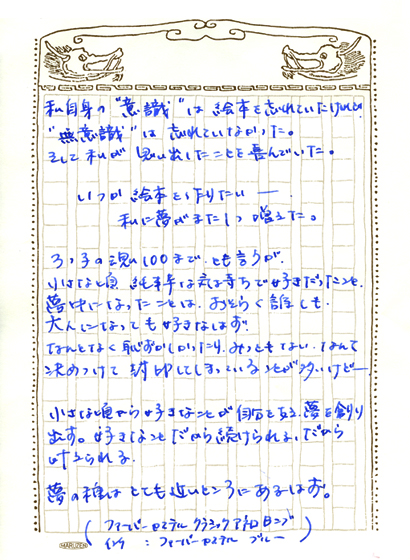 私自身の"意識"は絵本を忘れていたけれど、
"無意識"は忘れていなかった。
そして私が思い出したことを喜んでいた。
いつか絵本を作りたい ―
私に夢がまた1つ増えた。
3つ子の魂100まで、とも言うが、
小さな頃 純粋な気持ちで好きだったこと、
夢中になったことは、おそらく誰しも
大人になっても好きなはず。
なんとなく恥ずかしかったり、みっともない、なんて
決めつけて封印してしまっていることが多いけど―
小さな頃から好きなことが自分を支え、夢を創り
出す。好きなことだから続けられる、だから
叶えられる。
夢の種はとても近いところにあるはず。
(ファーバーカステル クラシック
インク:ファーバーカステル ブルー)
MARUZEN